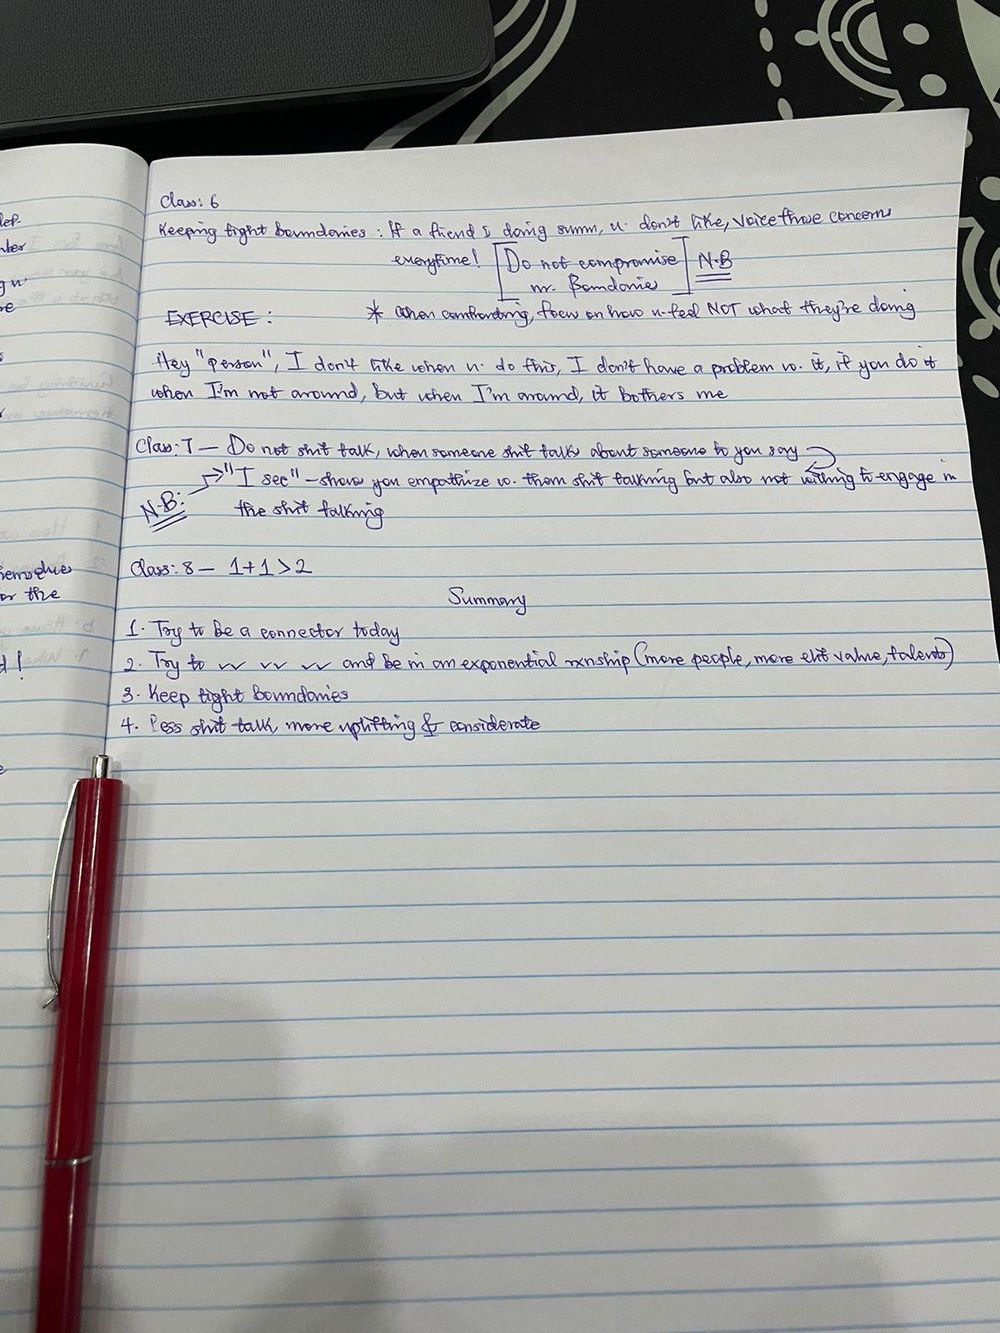 Class: 6
Keeping tight boundaries: If a friend is doing summ, u. don't like, voice those concerns
everytime! [Do not compromise] N.B
ur. Boundaries
EXERCISE: * When confronting, focus on how u feel NOT what they're doing
Hey "person", I don't like when u. do this, I don't have a problem w. it, if you do it
when I'm not around, but when I'm around, it bothers me
Class: 7 - Do not shit talk, when someone shit talks about someone to you say
N.B: → "I see" - shows you empathize w. them shit talking but also not willing to engage in
the shit talking
Class: 8 - 1+1>2
Summary
1. Try to be a connector today
2. Try to vv vv vv and be in an exponential rxnship (more people, more value, talents)
3. Keep tight boundaries
4. Less shit talk, more uplifting & considerate